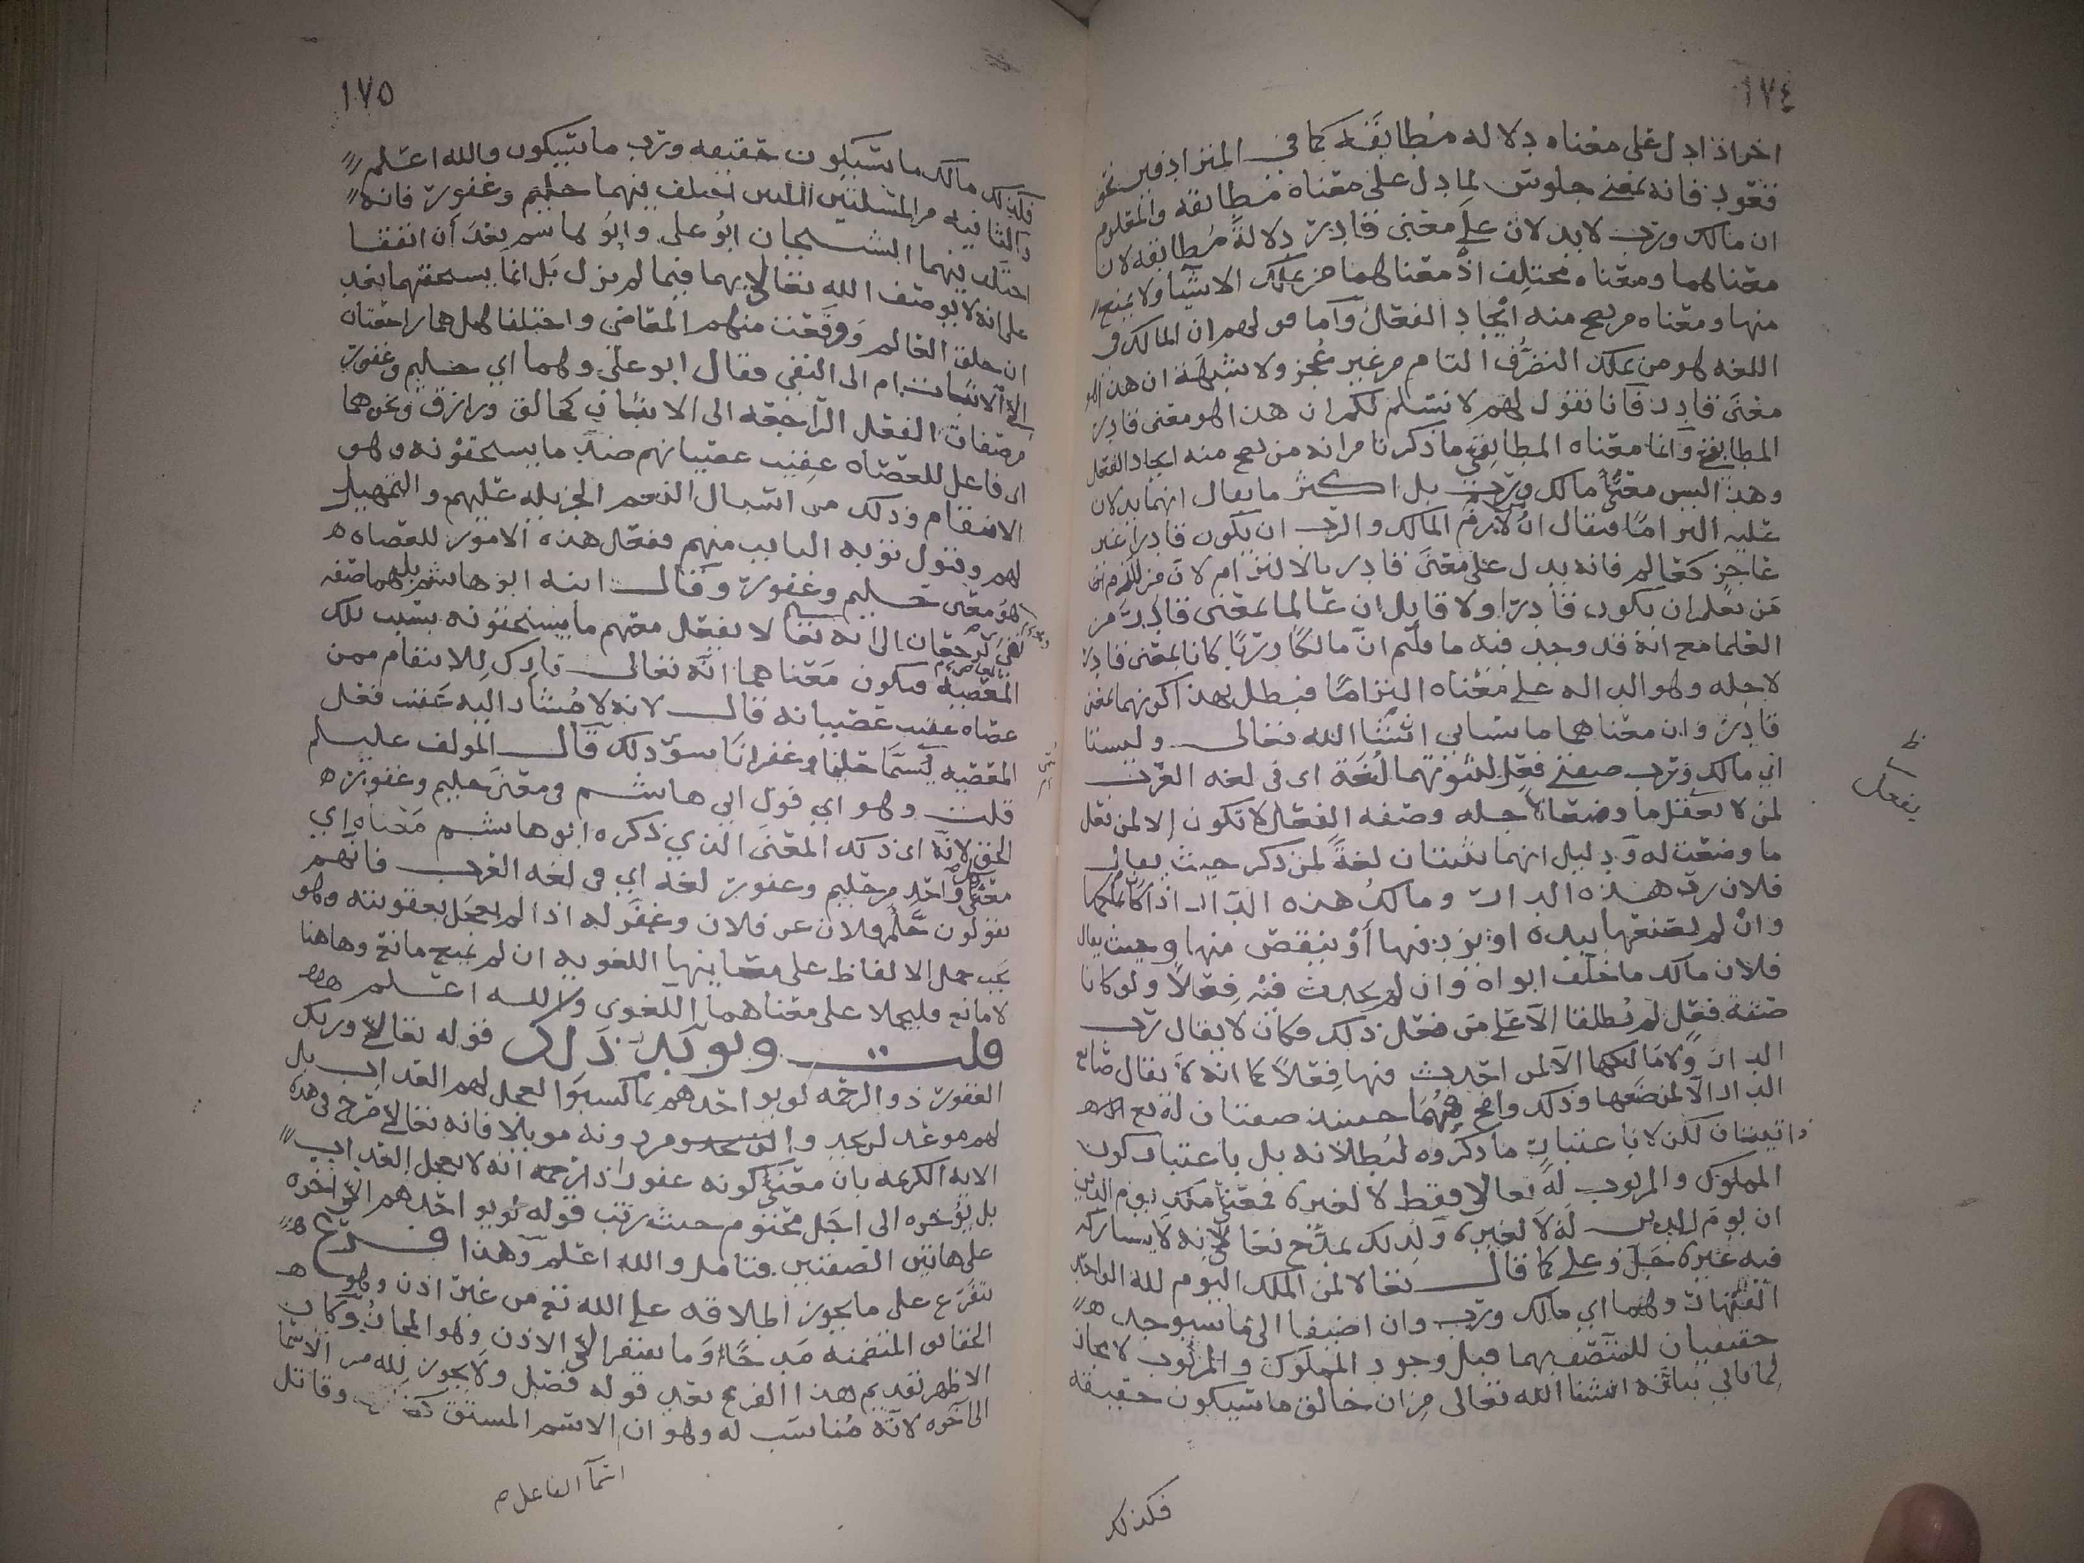 ١٧٤
اخر اذا دل على معناه دلاله مطابقه كما في المترادفين نحو
قعود فانه بمعنى جلوس لما دل على معناه مطابقه والمعلوم
ان مالك ورب لا يدلان على معنى قادر دلالة مطابقه لان
معناهما ومعناه مختلف اذ معناهما من يملك الاشيا ولا يمنع
منها ومعناه من يصح منه ايجاد الفعل وأما قولهم ان المالك في
اللغه هو من يملك التصرف التام من غير عجز ولا شبهة ان هذا هو
معنى قادر فانا نقول لهم لا نسلم لكم ان هذا هو معنى قادر
المطابقي وانما معناه المطابقي ما ذكرنا من انه من يصح منه ايجاد الفعل
وهذا ليس معنى مالك ورب بل اكثر ما يقال انهما يدلان
عليه التزاما فيقال ان لازم المالك والرب ان يكون قادرا غير
عاجز كعالم فانه يدل على معنى قادر بالالتزام لان من لازم
من يعلم ان يكون قادرا ولا قايل ان عالما بمعنى قادر من
العلما مع انه قد وجد فيه ما قلتم ان مالكا وربا كانا بمعنى قادر
لاجله وهو الدلاله على معناه التزاما فبطل بهذا كونهما بمعنى
قادر وان معناهما ما سياتي انشا الله تعالى وليستا
اي مالك ورب صفتي فعل لثبوتهما لغة اي في لغه العرب
لمن لا يفعل ما وضعا لاجله وصفه الفعل لا تكون الا لمن فعل
ما وضعت له ودليل انهما يثبتان لغة لمن ذكر حيث يقال
فلان رب هذه الدار ومالك هذه الدار اذا كان يملكها
وان لم يصنعها بيده او يزد فيها أو ينقص منها وحيث يقال
فلان مالك ما خلف ابواه وان لم يحدث فيه فعلا ولو كانا
صفة فعل لم يطلقا الا على من فعل ذلك فكان لا يقال رب
الدار ولا مالكها الا لمن احدث فيها فعلا كما انه لا يقال صانع
الدار الا لمن صنعها وذلك واضح فهما حينئذ صفتان له تعالى
ذاتيتان لكن لا باعتبار ما ذكروه لبطلانه بل باعتبار كون
المملوك والمربوب له تعالى فقط لا لغيره فمعنى ملك يوم الدين
ان يوم الدين له لا لغيره ولذلك يمدح تعالى لانه لا يشاركه
فيه غيره جل وعلى كما قال تعالى لمن الملك اليوم لله الواحد
القهار وهما اي مالك ورب وان اضيفا الى ما سيوجد
حقيقيان للمتصف بهما قبل وجود المملوك والمربوب لا مجاز
لما ياتي بيانه انشا الله تعالى من ان خالق ما سيكون حقيقه
فكذلك
يفعل
ظ
١٧٥
فكذلك مالك ما سيكون حقيقه ورب ما سيكون والله اعلم
والثانيه من المسلتين اللتين اختلف فيهما حليم وغفور فانه
اختلف فيهما الشيخان ابو علي وابو هاشم بعد أن اتفقا
على انه لا يوصف الله تعالى بهما فيما لم يزل بل انما يستحقهما بعد
ان خلق العالم ووقعت منهم المعاصي واختلفا هل هما راجعتان
الى الاثبات ام الى النفي فقال ابو علي وهما اي حليم وغفور
من صفات الفعل الراجعه الى الاثبات كخالق ورازق ونحوهما
اي فاعل للعصاه عقيب عصيانهم ضد ما يستحقونه وهو
الانتقام وذلك من اسبال النعم الجزيله عليهم والتمهيل
لهم وقبول توبه التايب منهم ففعل هذه الامور للعصاه
هو معنى حليم وغفور وقال ابنه ابو هاشم بل هما صفه
نفي يرجعان الى انه تعالى لا يفعل معهم ما يستحقونه بسبب تلك
المعصيه فيكون معناهما انه تعالى تارك للانتقام ممن
عصاه عقيب عصيانه قال لانه لا مشار اليه عقيب فعل
المعصيه يسما حلما وغفرانا سوى ذلك قال المولف عليلم
قلت وهو اي قول ابي هاشم في معنى حليم وغفور
الحق لانه اي ذلك المعنى الذي ذكره ابو هاشم معناه اي
معنى كل واحد من حليم وغفور لغه اي في لغه العرب فانهم
يقولون حلم فلان عن فلان وغفر له اذا لم يعجل بعقوبته وهو
يجب حمل الالفاظ على معانيها اللغويه ان لم يمنع مانع وهاهنا
لا مانع فليحملا على معناهما اللغوي والله اعلم
قلت ويويد ذلك قوله تعالى وربك
الغفور ذو الرحمه لو يواخذهم بما كسبوا لعجل لهم العذاب بل
لهم موعد لن يجدوا من دونه مويلا فانه تعالى صرح في هذه
الايه الكريمه بان معنى كونه غفورا ذا الرحمه انه لا يعجل العذاب
بل يوخره الى اجل محتوم حيث رتب قوله لو يواخذهم الى اخره
على هاتين الصفتين فتامل والله اعلم وهذا فرع
يتفرع على ما يجوز اطلاقه على الله تعالى من غير اذن وهو
الحقايق المتضمنه مدحا وما يفتقر الى الاذن وهو المجاز وكان
الاظهر تقديم هذا الفرع بعد قوله فصل ولا يجوز لله من الاسما
الى آخره لانه مناسب له وهو ان الاسم المشتق وقاتل
اسما الفاعل